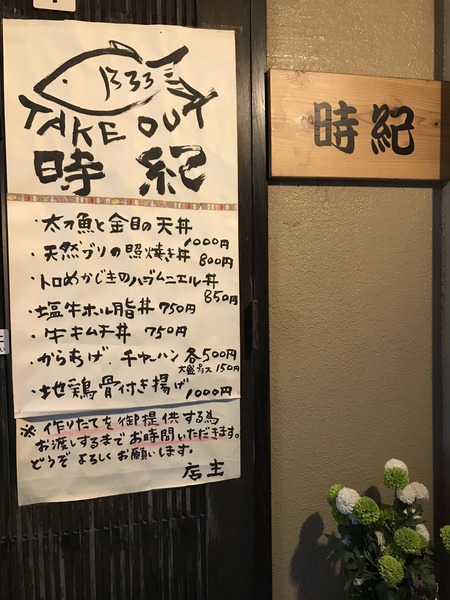 TAKE OUT
時紀
・太刀魚と金目の天丼
1000円
・天然ブリの照焼き丼 800円
・トロめかじきのハブムニエル丼
850円
・塩牛ホル脂丼 750円
・牛キムチ丼 750円
・からあげ、チャーハン 各500円
大盛プラス150円
・地鶏骨付き揚げ
1000円
※作りたてを御提供する為
お渡しするまでお時間いただきます。
どうぞよろしくお願いします。
店主
時紀